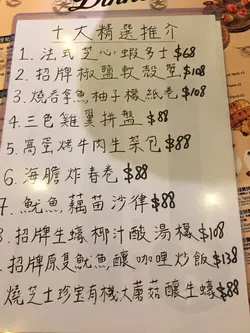 Dinner
十大精選推介
1. 法式芝心蝦多士 $68
2. 招牌椒鹽軟殼蟹 $108
3. 燒吞拿魚柚子檬紙卷 $108
4. 三色雞翼拼盤 $88
5. 窩蛋烤牛肉生菜包 $88
6. 海膽炸春卷 $88
7 魷魚藕苗沙律 $88
招牌生蠔椰汁酸湯檬 $108
招牌原隻魷魚釀咖哩炒飯 $138
燒芝士珍宝有機大蘑菇釀生蠔 $88